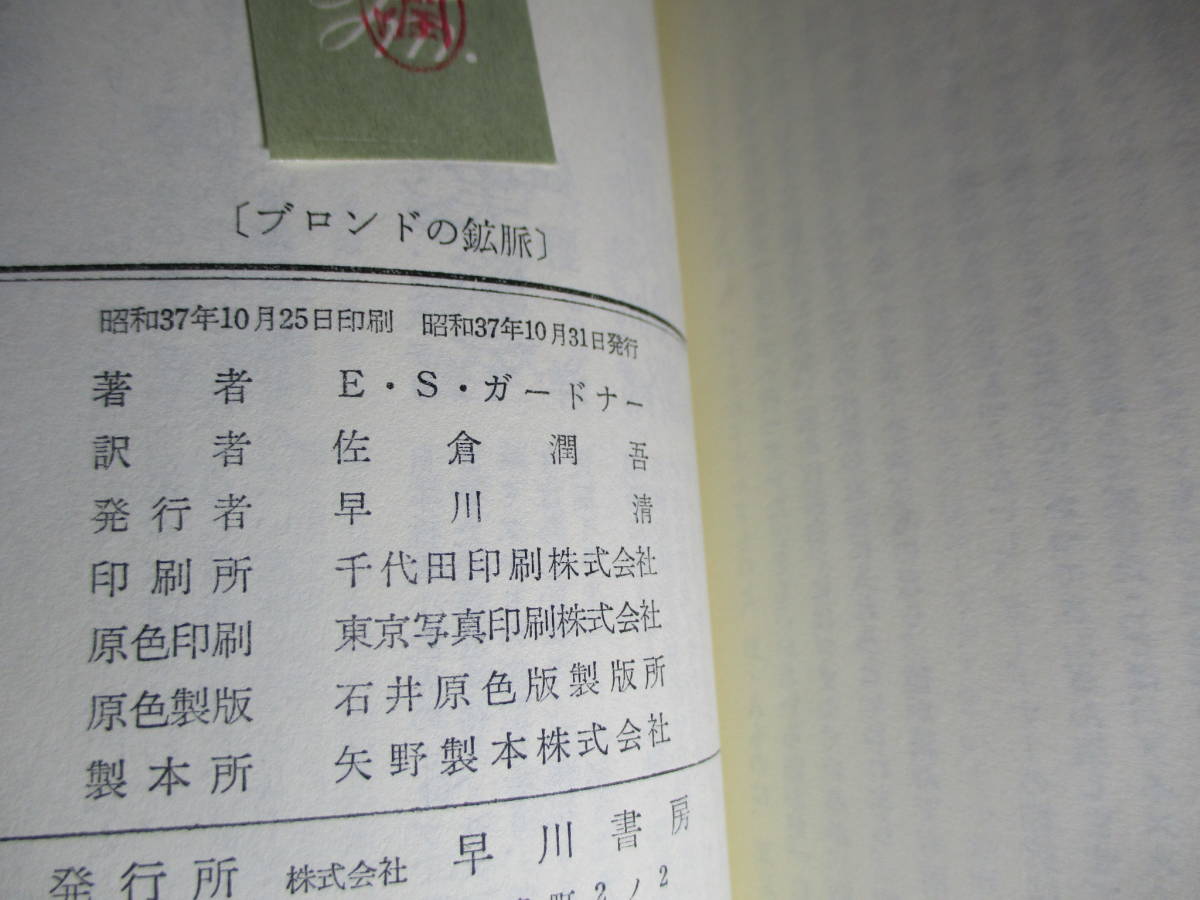 〔ブロンドの鉱脈〕
昭和37年10月25日印刷 昭和37年10月31日発行
著者 E・S・ガードナー
訳者 佐倉潤吾
発行者 早川清
印刷所 千代田印刷株式会社
原色印刷 東京写真印刷株式会社
原色製版 石井原色版製版所
製本所 矢野製本株式会社
発行所 株式会社 早川書房
町2ノ2